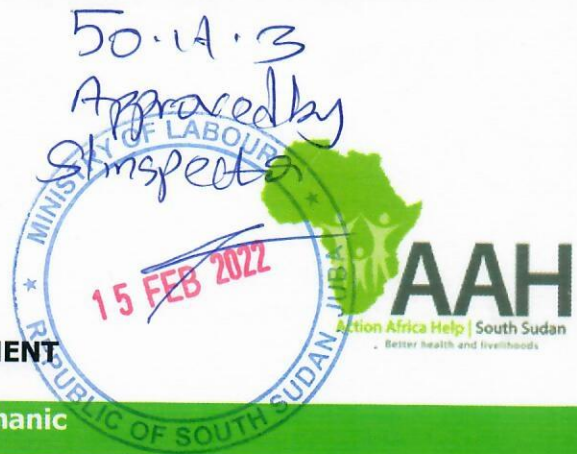 50.1A.3
Approved by
S/Inspector
MINISTRY OF LABOUR
15 FEB 2022
REPUBLIC OF SOUTH SUDAN JUBA
AAH
Action Africa Help | South Sudan
Better health and livelihoods
MENT
hanic